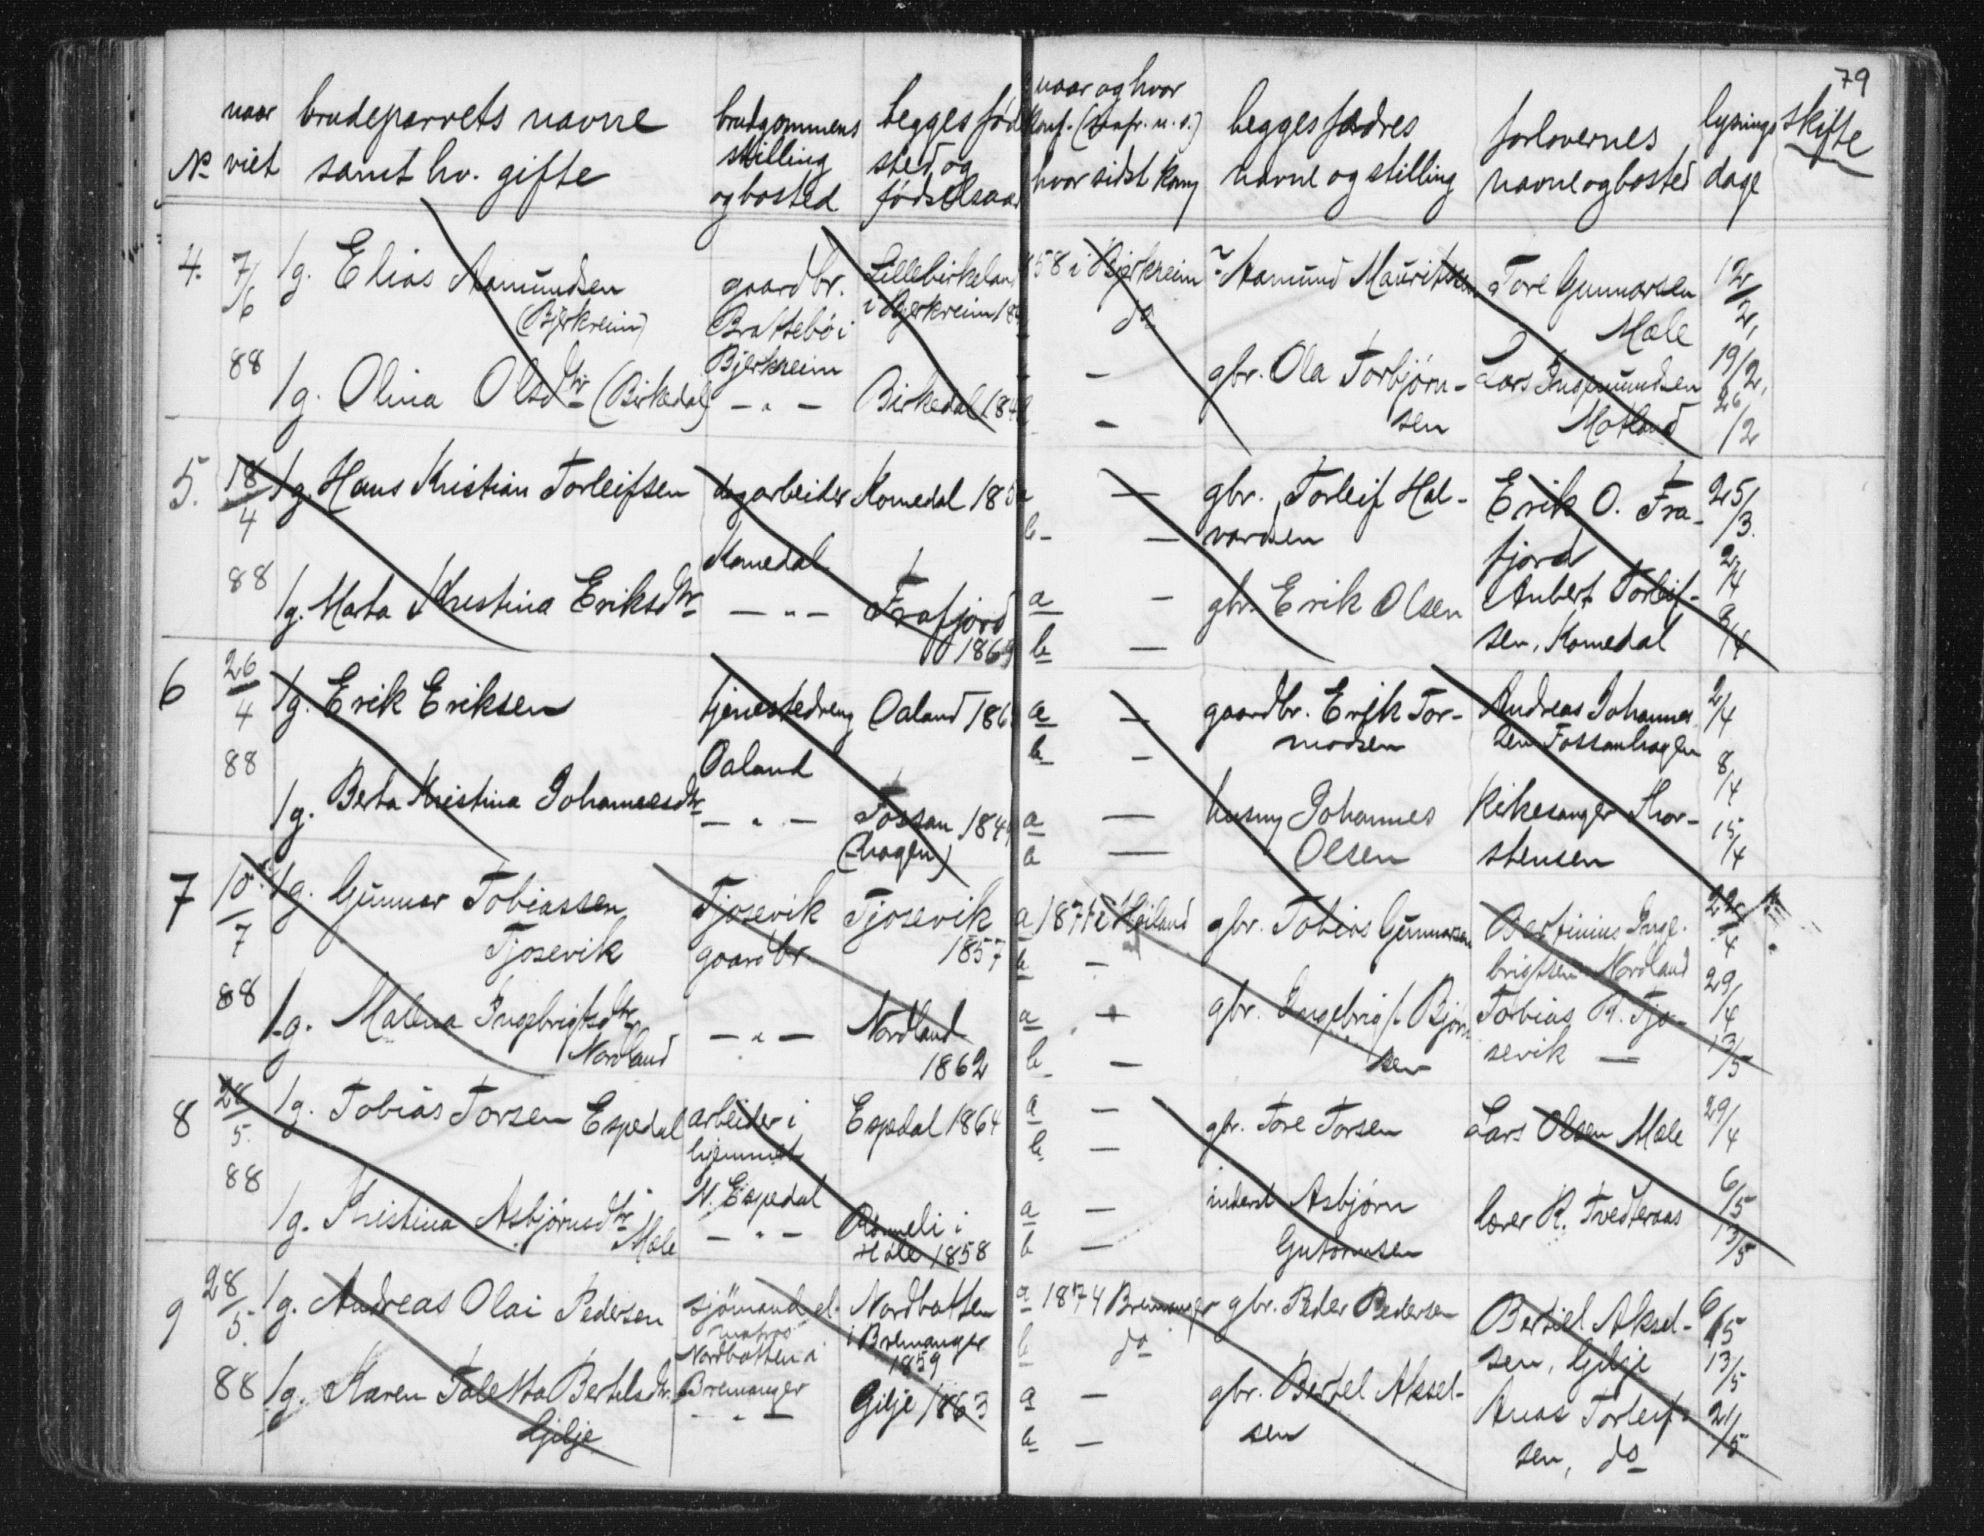 79
No
naar
viet
brudeparrets navne
samt hv. gifte
brudgommens
stilling
og bosted
begges føde
sted og
fødselsaar
naar og hvor
konf.
hvor sidst kom
begges fædres
navne og stilling
forlovernes
navne og bosted
lysnings
dage
skifte
4. 7/6 88
1g. Elias Aamundsen
(Bjerkreim)
gaardbr.
Brattebø i
Bjerkreim
Lillebirkeland
i Bjerkreim
58 i Bjerkreim
do
Aamund Mauritsen
Tore Gunnarsen
Mæle
12/2,
1g. Olina Olsdtr (Birkedal)
— " —
Birkedal
—
-
gbr. Ola Torbjørn-
sen
Lars Ingemundsen
Motland
19/2,
26/2
5. 18/4 88
1g. Hans Kristian Torleifsen
dagarbeider
Komedal
Komedal
—
b- —
gbr. Torleif Hal-
vardsen
Erik O. Fra-
fjord
25/3.
2/4
1g. Marta Kristina Eriksdtr
— " —
Frafjord
1869
a —
b —
gbr. Erik Olsen
Aubert Torleif-
sen, Komedal
8/4
6 26/4 88
1g. Erik Eriksen
tjenestedreng
Oaland
Oaland
a —
b —
gaardbr. Erik Tor-
modsen
Andreas Johannes
sen Fossanhagen
2/4
8/4
1g. Berta Kristina Johannesdtr
— " —
Fossan
(-hagen)
a —
a —
husmd Johannes
Olsen
Kirkesanger Thor-
stensen
15/4
7 10/7 88
1g. Gunnar Tobiassen
Tjosevik
Tjosevik
gaardbr
Tjosevik
1857
a 187 i Høiland
b —
gbr. Tobias Gunnarsen
Bertinius Inge-
brigtsen Nordland
22/4
29/4
1g. Malena Ingebrigtsdtr
Nordland
— " —
Nordland
1862
a —
b —
gbr. Ingebrigt Bjørn
sen
Tobias R. Tjo-
sevik —
13/5
8 28/5. 88
1g. Tobias Torsen Espedal
arbeider i
hjemmet
N. Espedal
Espedal 1864
a —
b —
gbr. Tore Torsen
Lars Olsen Mæle
29/4
1g. Kristina Asbjørnsdtr
Mæle
— " —
i
Høle 1858
a —
b —
inderst Asbjørn
Gutormsen
lærer R. Tvedteraas
6/5
13/5
9 28/5. 88
1g. Andreas Olai Pedersen
sjömand el.
matros
Nordbotten i
Bremanger
Nordbotten
i Bremanger
1859
a 1874 Bremanger
b do
gbr. Peder Pedersen
Bertel Aksel-
sen, Gilje
6/5
13/5
1g. Karen Taletta Bertelsdtr.
Gilje
— " —
Gilje 1863
a —
a —
gbr. Bertel Aksel-
sen
Anas Torleif-
sen, do
21/5